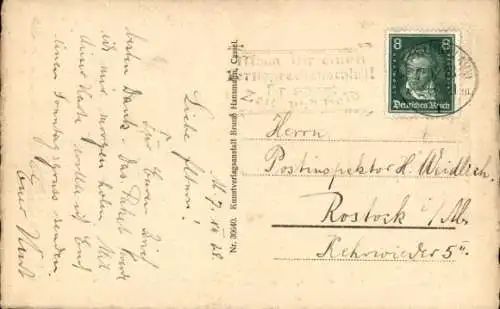 M. 7.10.28.
Liebe Eltern!
Für Euren Brief
besten Dank. Das Paket werde
ich mir morgen holen. Mit
dieser Karte wollte ich Euch
einen Sonntagsgruss senden.
Euer Kurt
Nr. 00960. Kunstverlagsanstalt Bruno Hansmann, Cassel.
Nimm Dir einen
Fernsprechanschluß!
Er spart
Zeit und Geld
8 8
Deutsches Reich
Herrn
Postinspektor H. Weidlich.
Rostock i/M.
Kehrwieder 5 II.